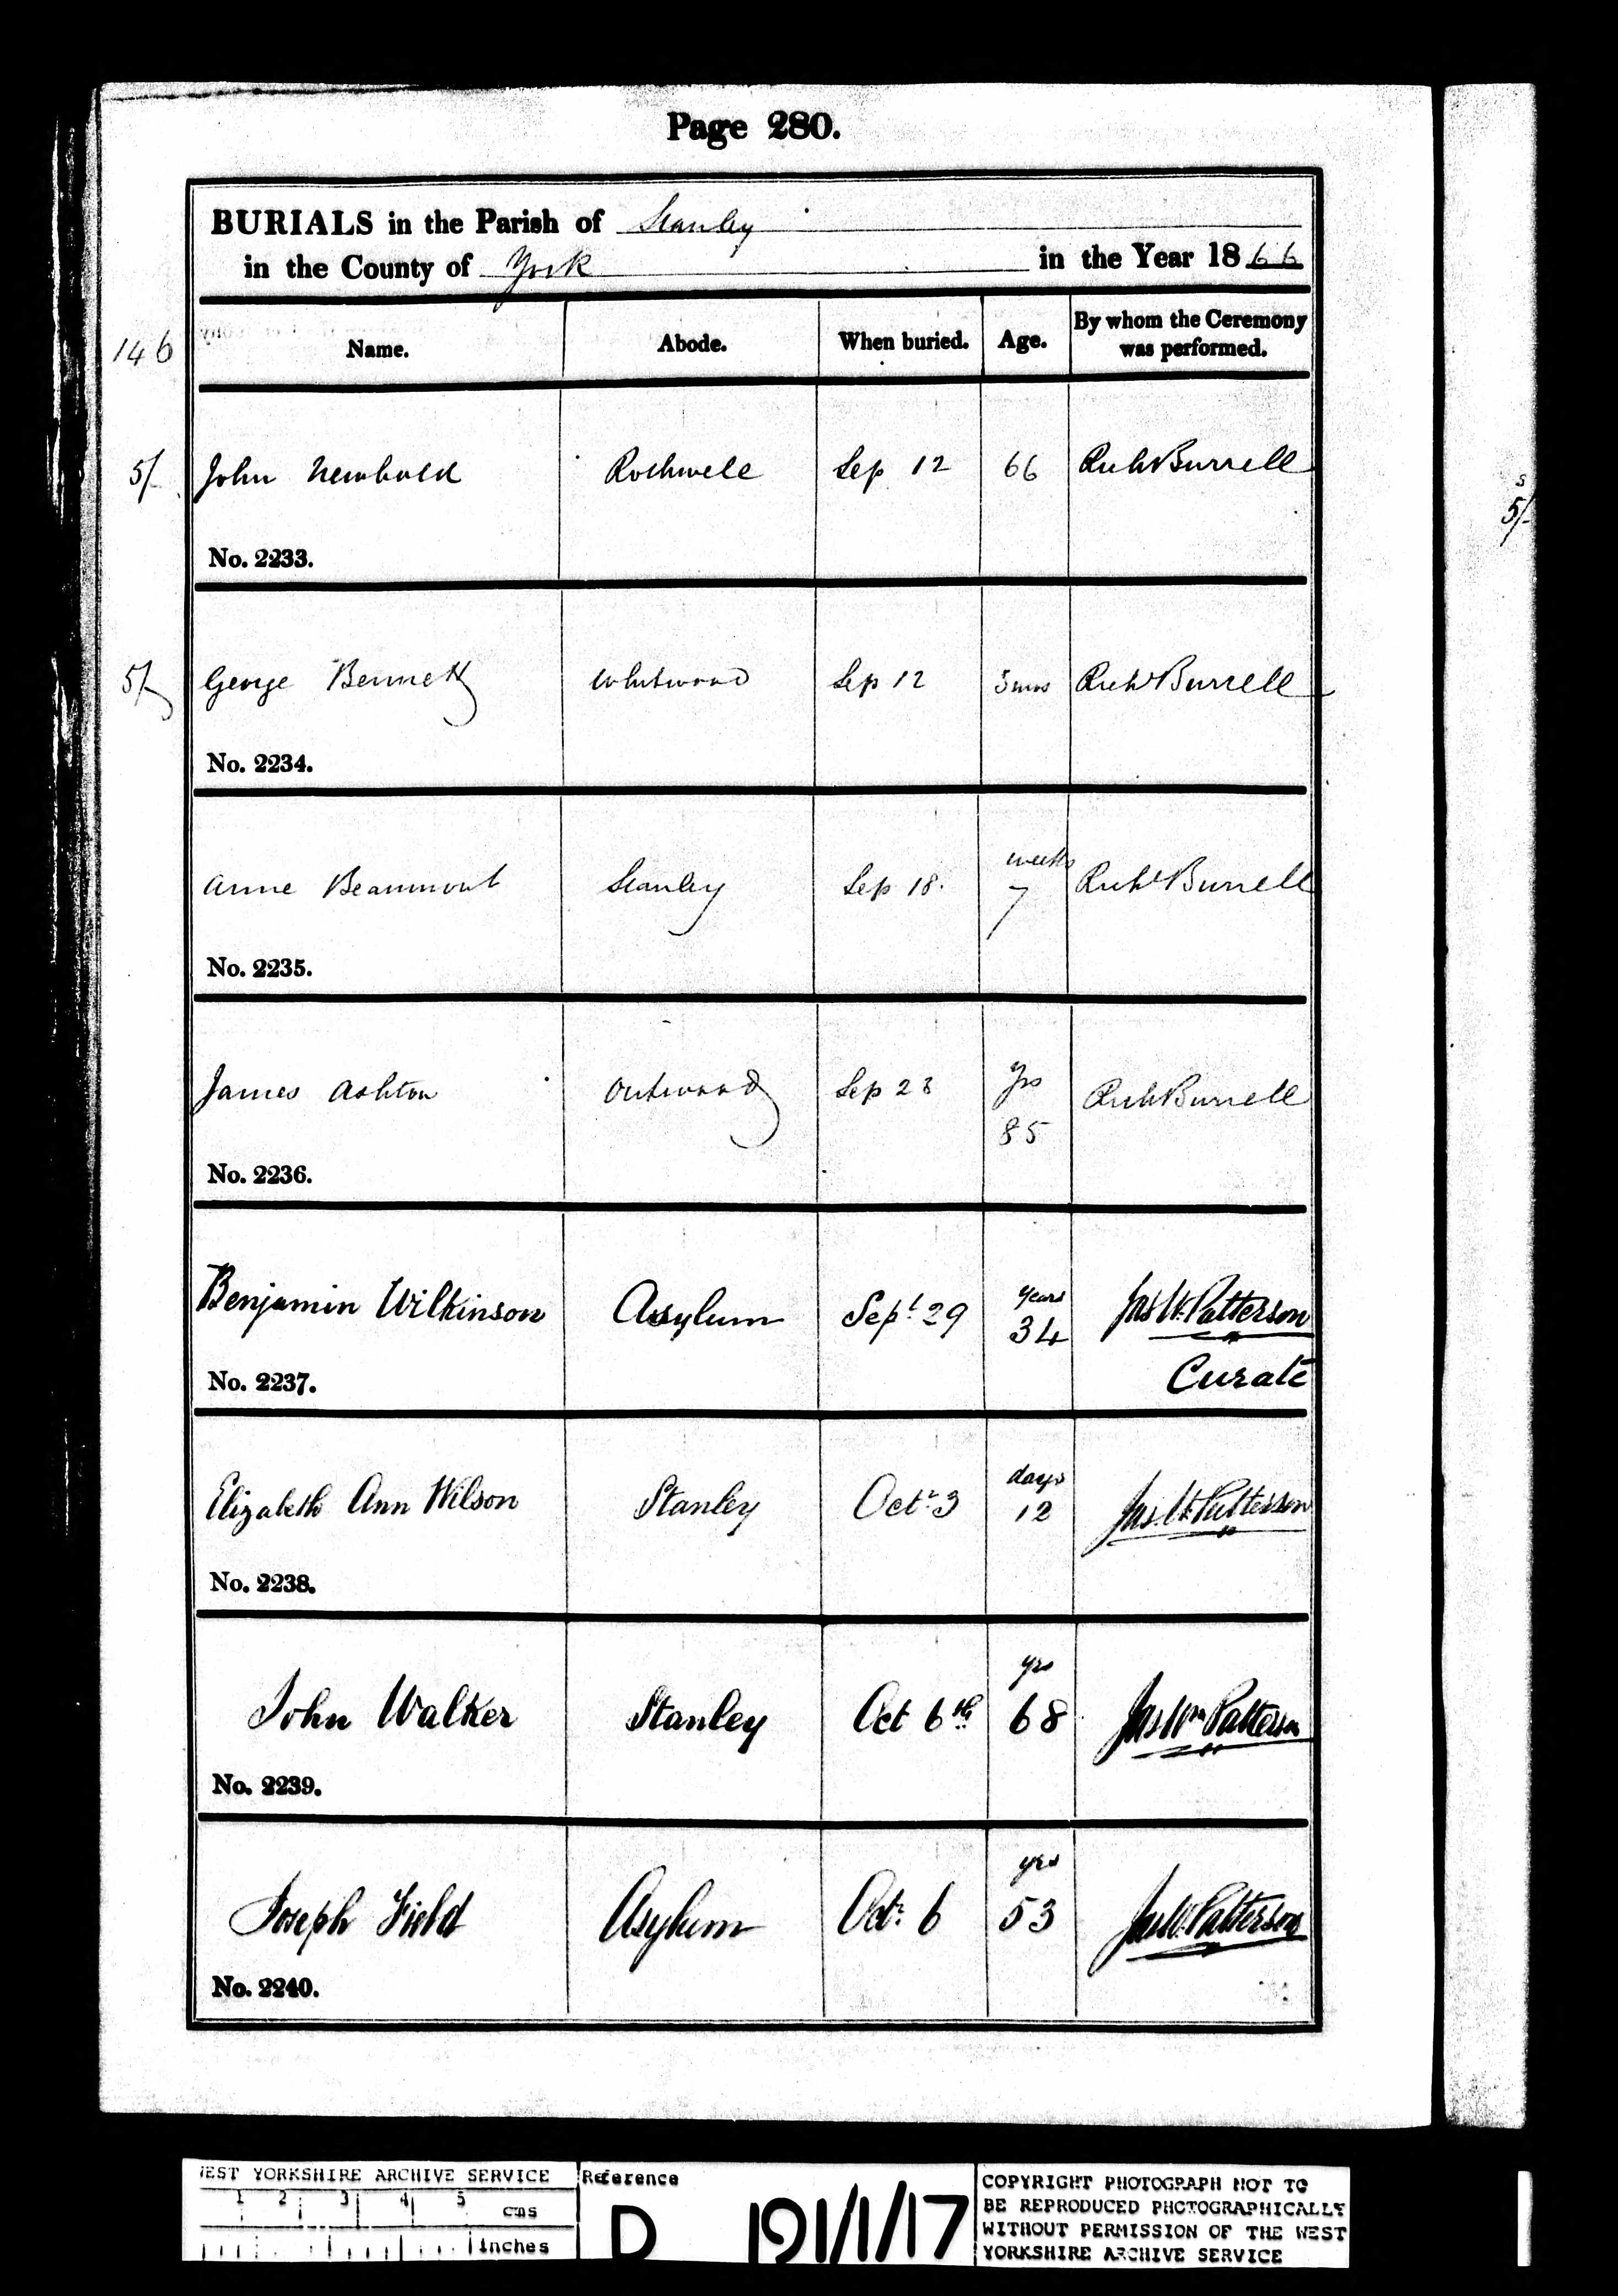 Page 280.
BURIALS in the Parish of Stanley
in the County of York in the Year 1866
146 Name. Abode. When buried. Age. By whom the Ceremony was performed.
5/- John Newbold Rothwell Sep 12 66 Richd Burrell
No. 2233.
5/- George Bennett Whitwood Sep 12 5 mos Richd Burrell
No. 2234.
Anne Beaumont Stanley Sep 18. weeks 7 Richd Burrell
No. 2235.
James Ashton Outwood Sep 28 yrs 85 Richd Burrell
No. 2236.
Benjamin Wilkinson Asylum Sept 29 years 34 Jas W. Patterson
Curate
No. 2237.
Elizabeth Ann Wilson Stanley Octr 3 days 12 Jas. W. Patterson
No. 2238.
John Walker Stanley Oct 6th yrs 68 Jas Wm Patterson
No. 2239.
Joseph Field Asylum Octr 6 yrs 53 Jas W. Patterson
No. 2240.
5/-
WEST YORKSHIRE ARCHIVE SERVICE
1 2 3 4 5 cms
inches
Reference
D 191/1/17
COPYRIGHT PHOTOGRAPH NOT TO
BE REPRODUCED PHOTOGRAPHICALLY
WITHOUT PERMISSION OF THE WEST
YORKSHIRE ARCHIVE SERVICE